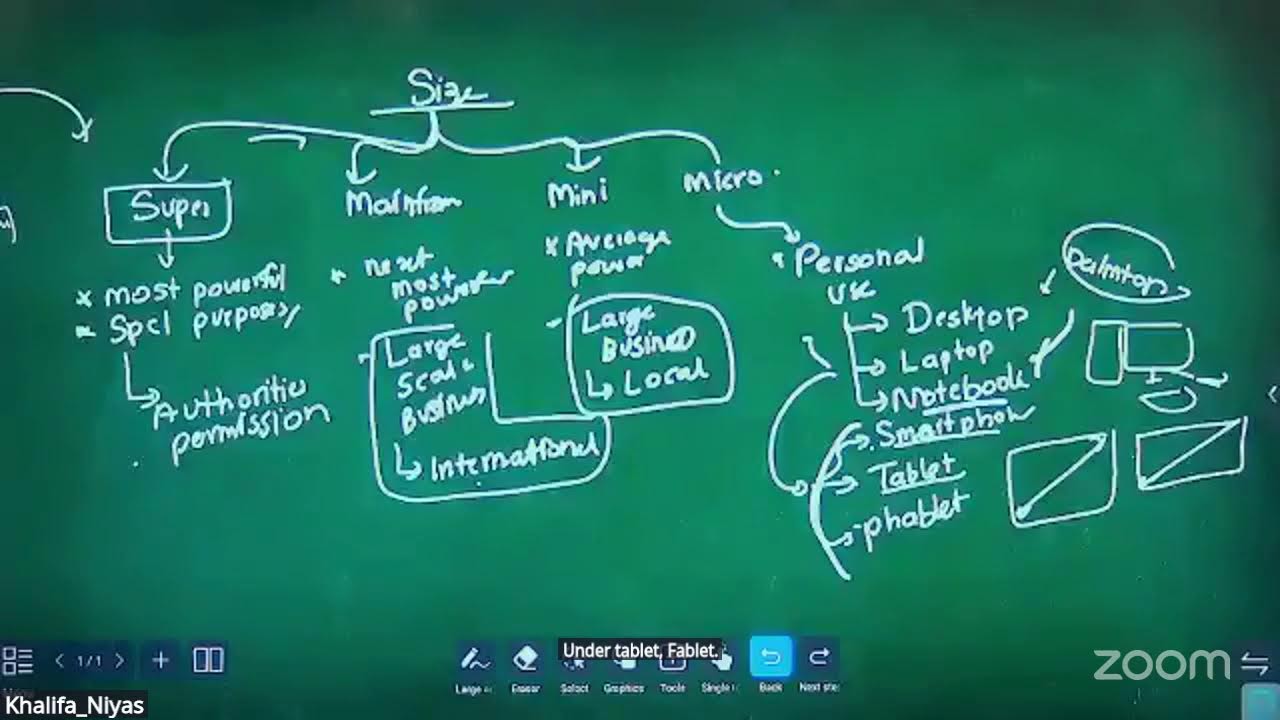 Size
Super
Mainfram
Mini
Micro
* most powerful
Spcl purposes/
Authoritie
permission
next
most
powerful
Large
Scale
Business
International
* Average
power
Large
Business
Local
* Personal
use
Desktop
Laptop
Notebook
Smartphon
Tablet
phablet
Palmtop
Under tablet, Fablet.
< 1/1 > +
Eraser
Select
Graphics
Tools
Back
zoom
Khalifa_Niyas